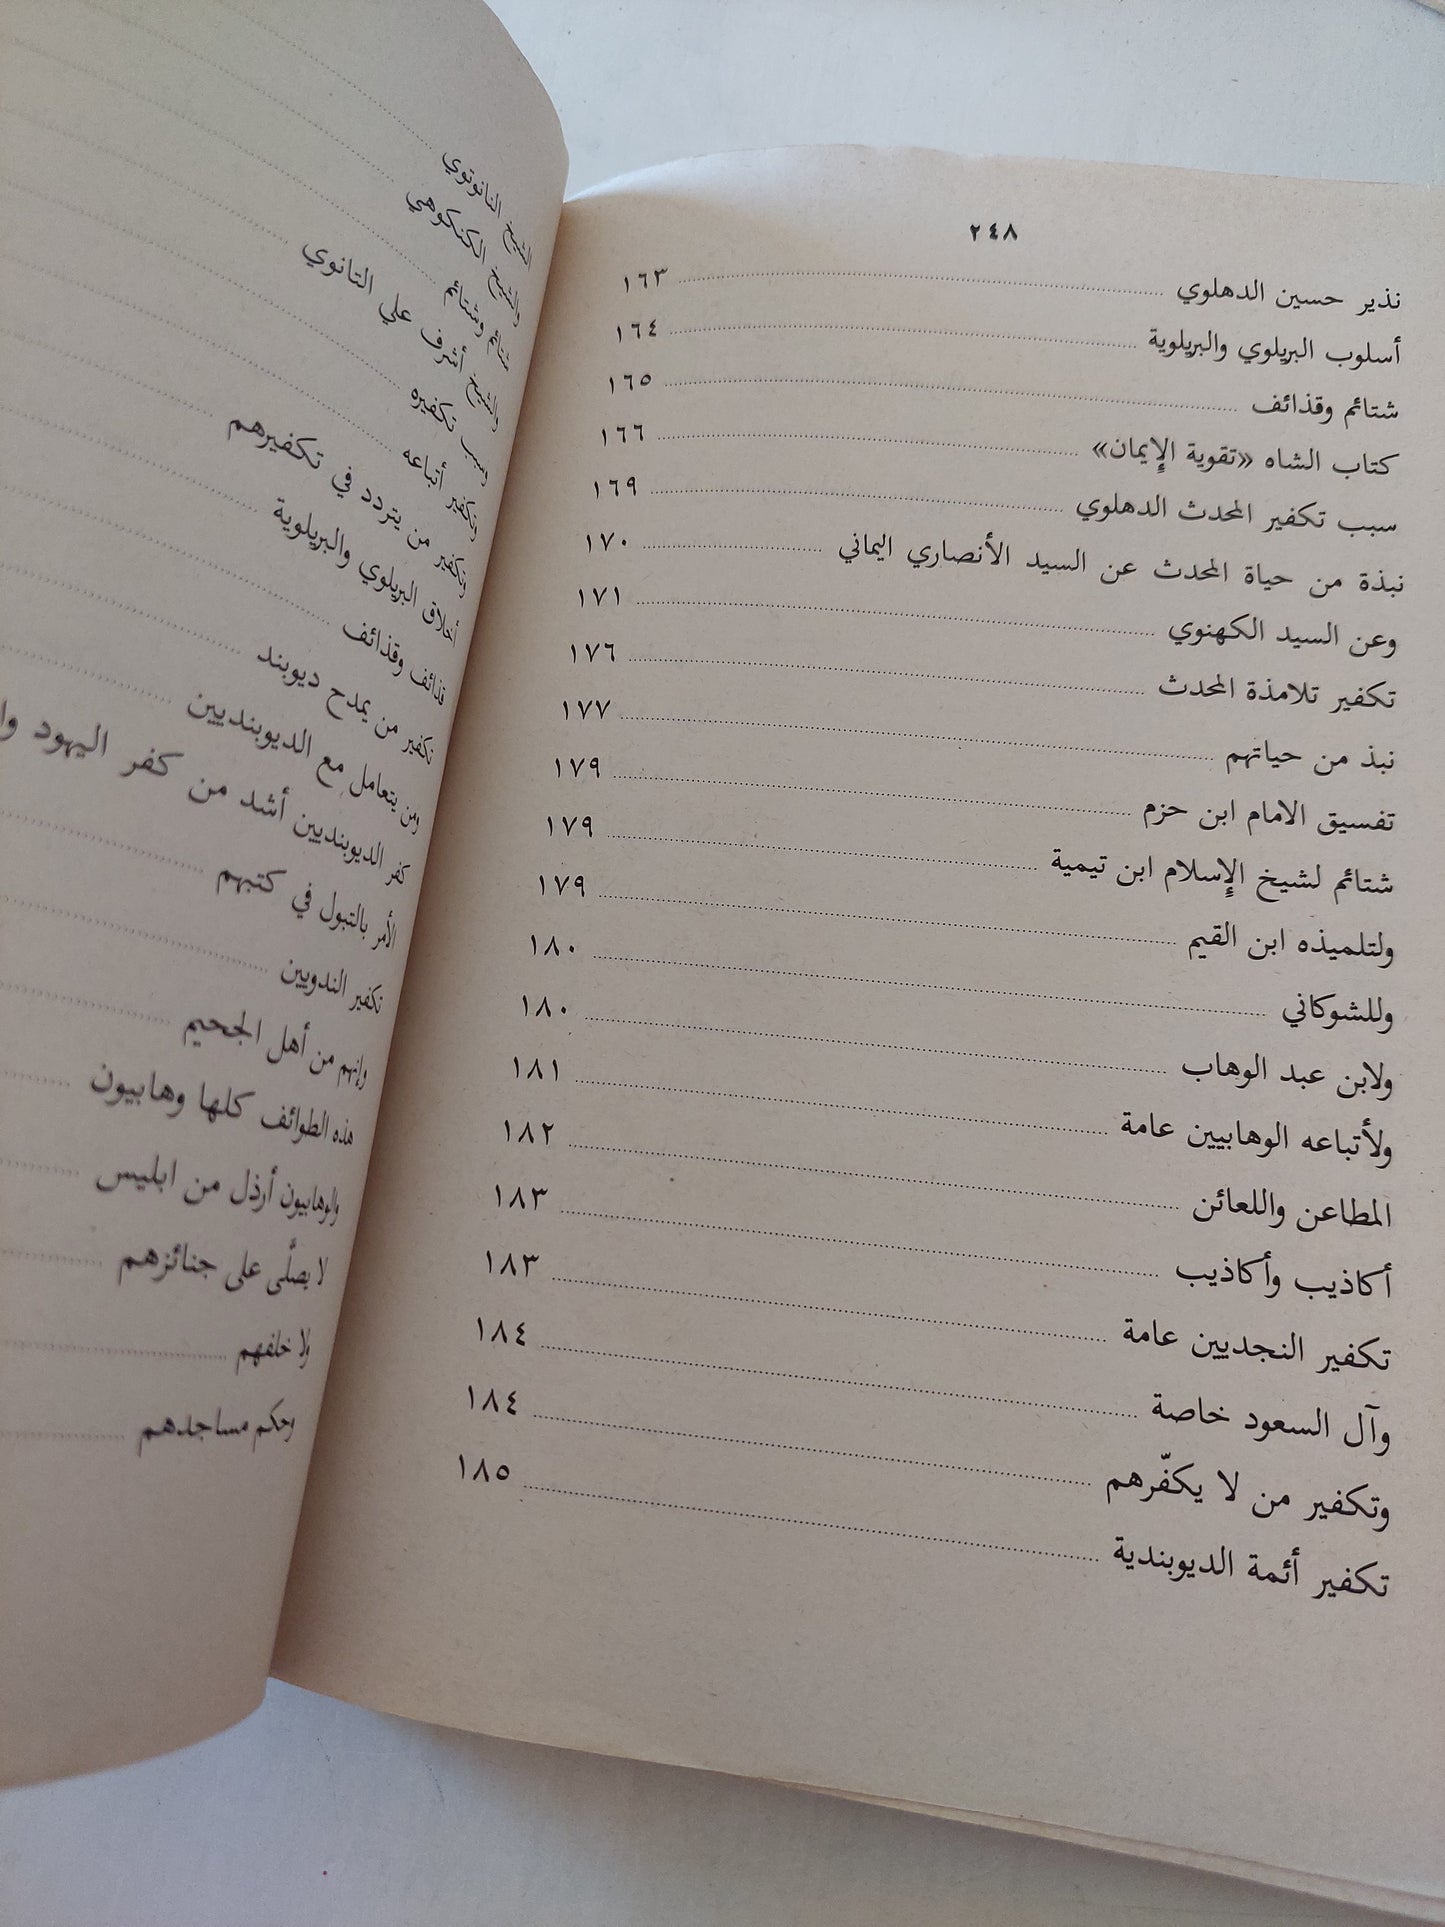 ٢٤٨
نذير حسين الدهلوي ........ ١٦٣
أسلوب البريلوي والبريلوية ........ ١٦٤
شتائم وقذائف ........ ١٦٥
كتاب الشاه «تقوية الإيمان» ........ ١٦٦
سبب تكفير المحدث الدهلوي ........ ١٦٩
نبذة من حياة المحدث عن السيد الأنصاري اليماني ........ ١٧٠
وعن السيد الكهنوي ........ ١٧١
تكفير تلامذة المحدث ........ ١٧٦
نبذ من حياتهم ........ ١٧٧
تفسيق الامام ابن حزم ........ ١٧٩
شتائم لشيخ الإسلام ابن تيمية ........ ١٧٩
ولتلميذه ابن القيم ........ ١٧٩
وللشوكاني ........ ١٨٠
ولابن عبد الوهاب ........ ١٨٠
ولأتباعه الوهابيين عامة ........ ١٨١
المطاعن واللعائن ........ ١٨٢
أكاذيب وأكاذيب ........ ١٨٣
تكفير النجديين عامة ........ ١٨٣
وآل السعود خاصة ........ ١٨٤
وتكفير من لا يكفّرهم ........ ١٨٤
تكفير أئمة الديوبندية ........ ١٨٥
الشيخ النانوتوي ........
والشيخ الكنكوهي ........
شتائم وشتائم ........
والشيخ أشرف علي التانوي ........
وسبب تكفيره ........
وتكفير أتباعه ........
وتكفير من يتردد في تكفيرهم ........
أخلاق البريلوي والبريلوية ........
قذائف وقذائف ........
تكفير من يمدح ديوبند ........
ومن يتعامل مع الديوبنديين ........
كفر الديوبنديين أشد من كفر اليهود
الأمر بالتبول في كتبهم ........
تكفير الندويين ........
وإنهم من أهل الجحيم ........
هذه الطوائف كلها وهابيون ........
والوهابيون أرذل من ابليس ........
لا يصلَّى على جنائزهم ........
ولا خلفهم ........
وحكم مساجدهم ........